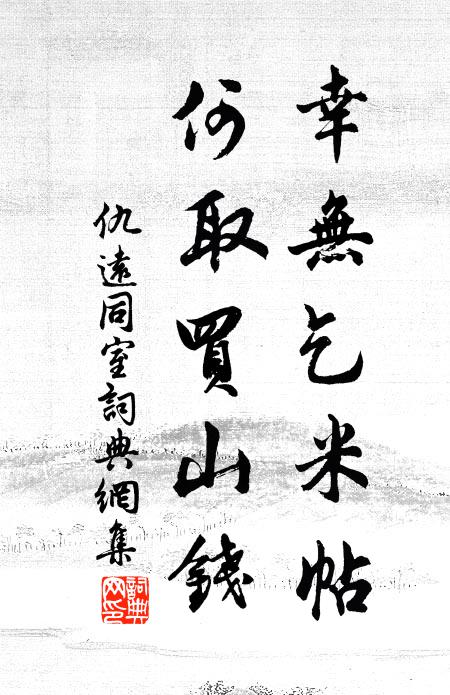 幸無乞米帖
何取買山錢
仇遠同室詞典網集
詞典网印